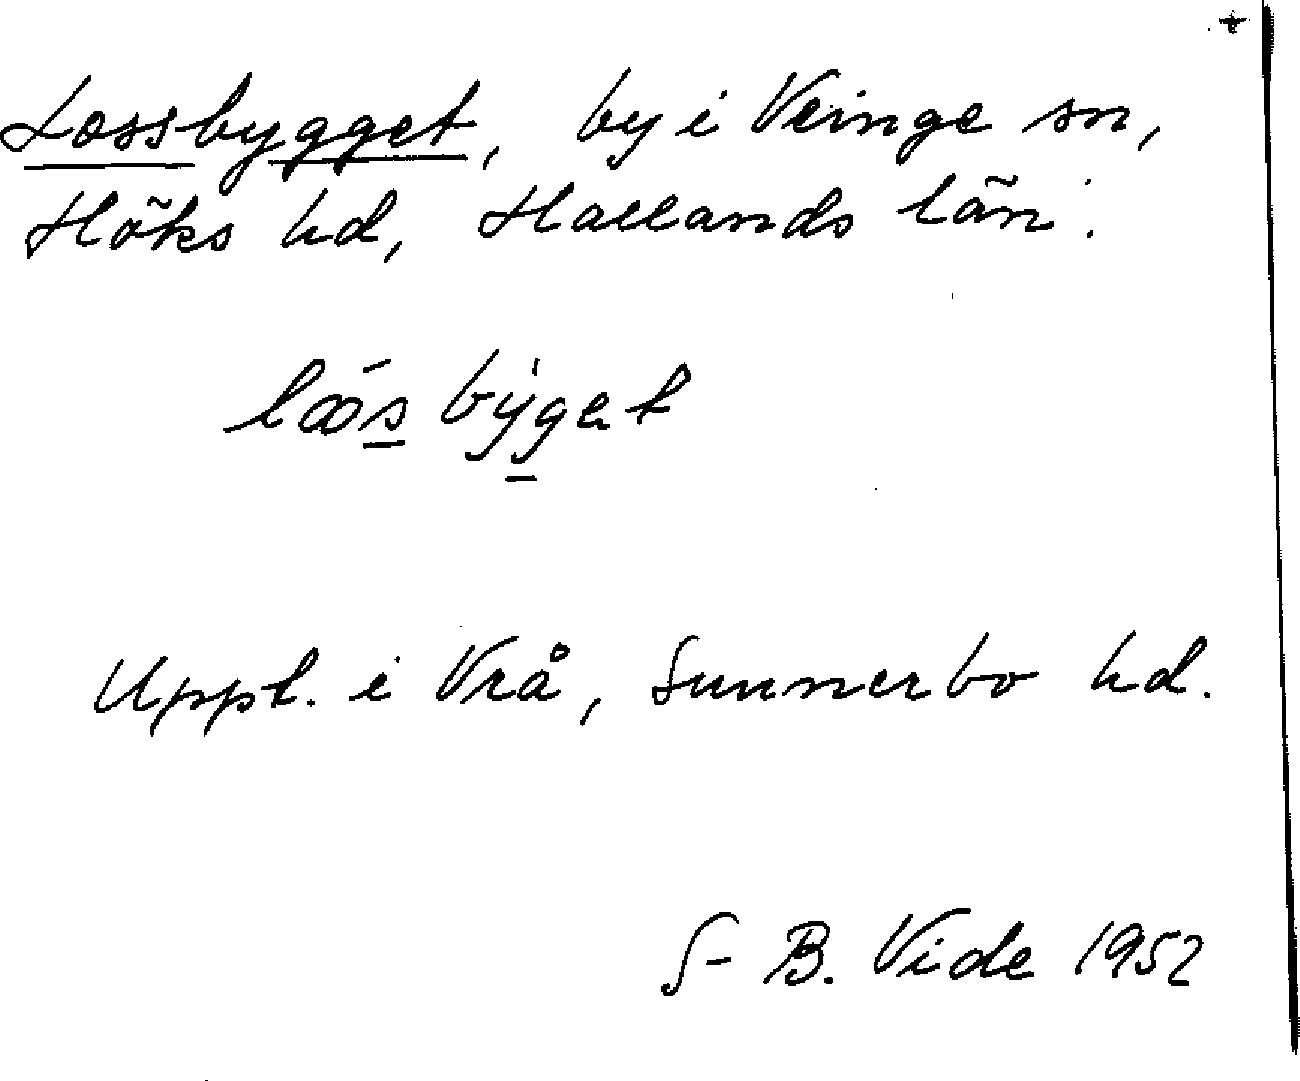 +
Lossbygget, by i Veinge sn,
Höks hd, Hallands län.
Uppt. i Vrå, Sunnerbo hd.
S-B. Vide 1952